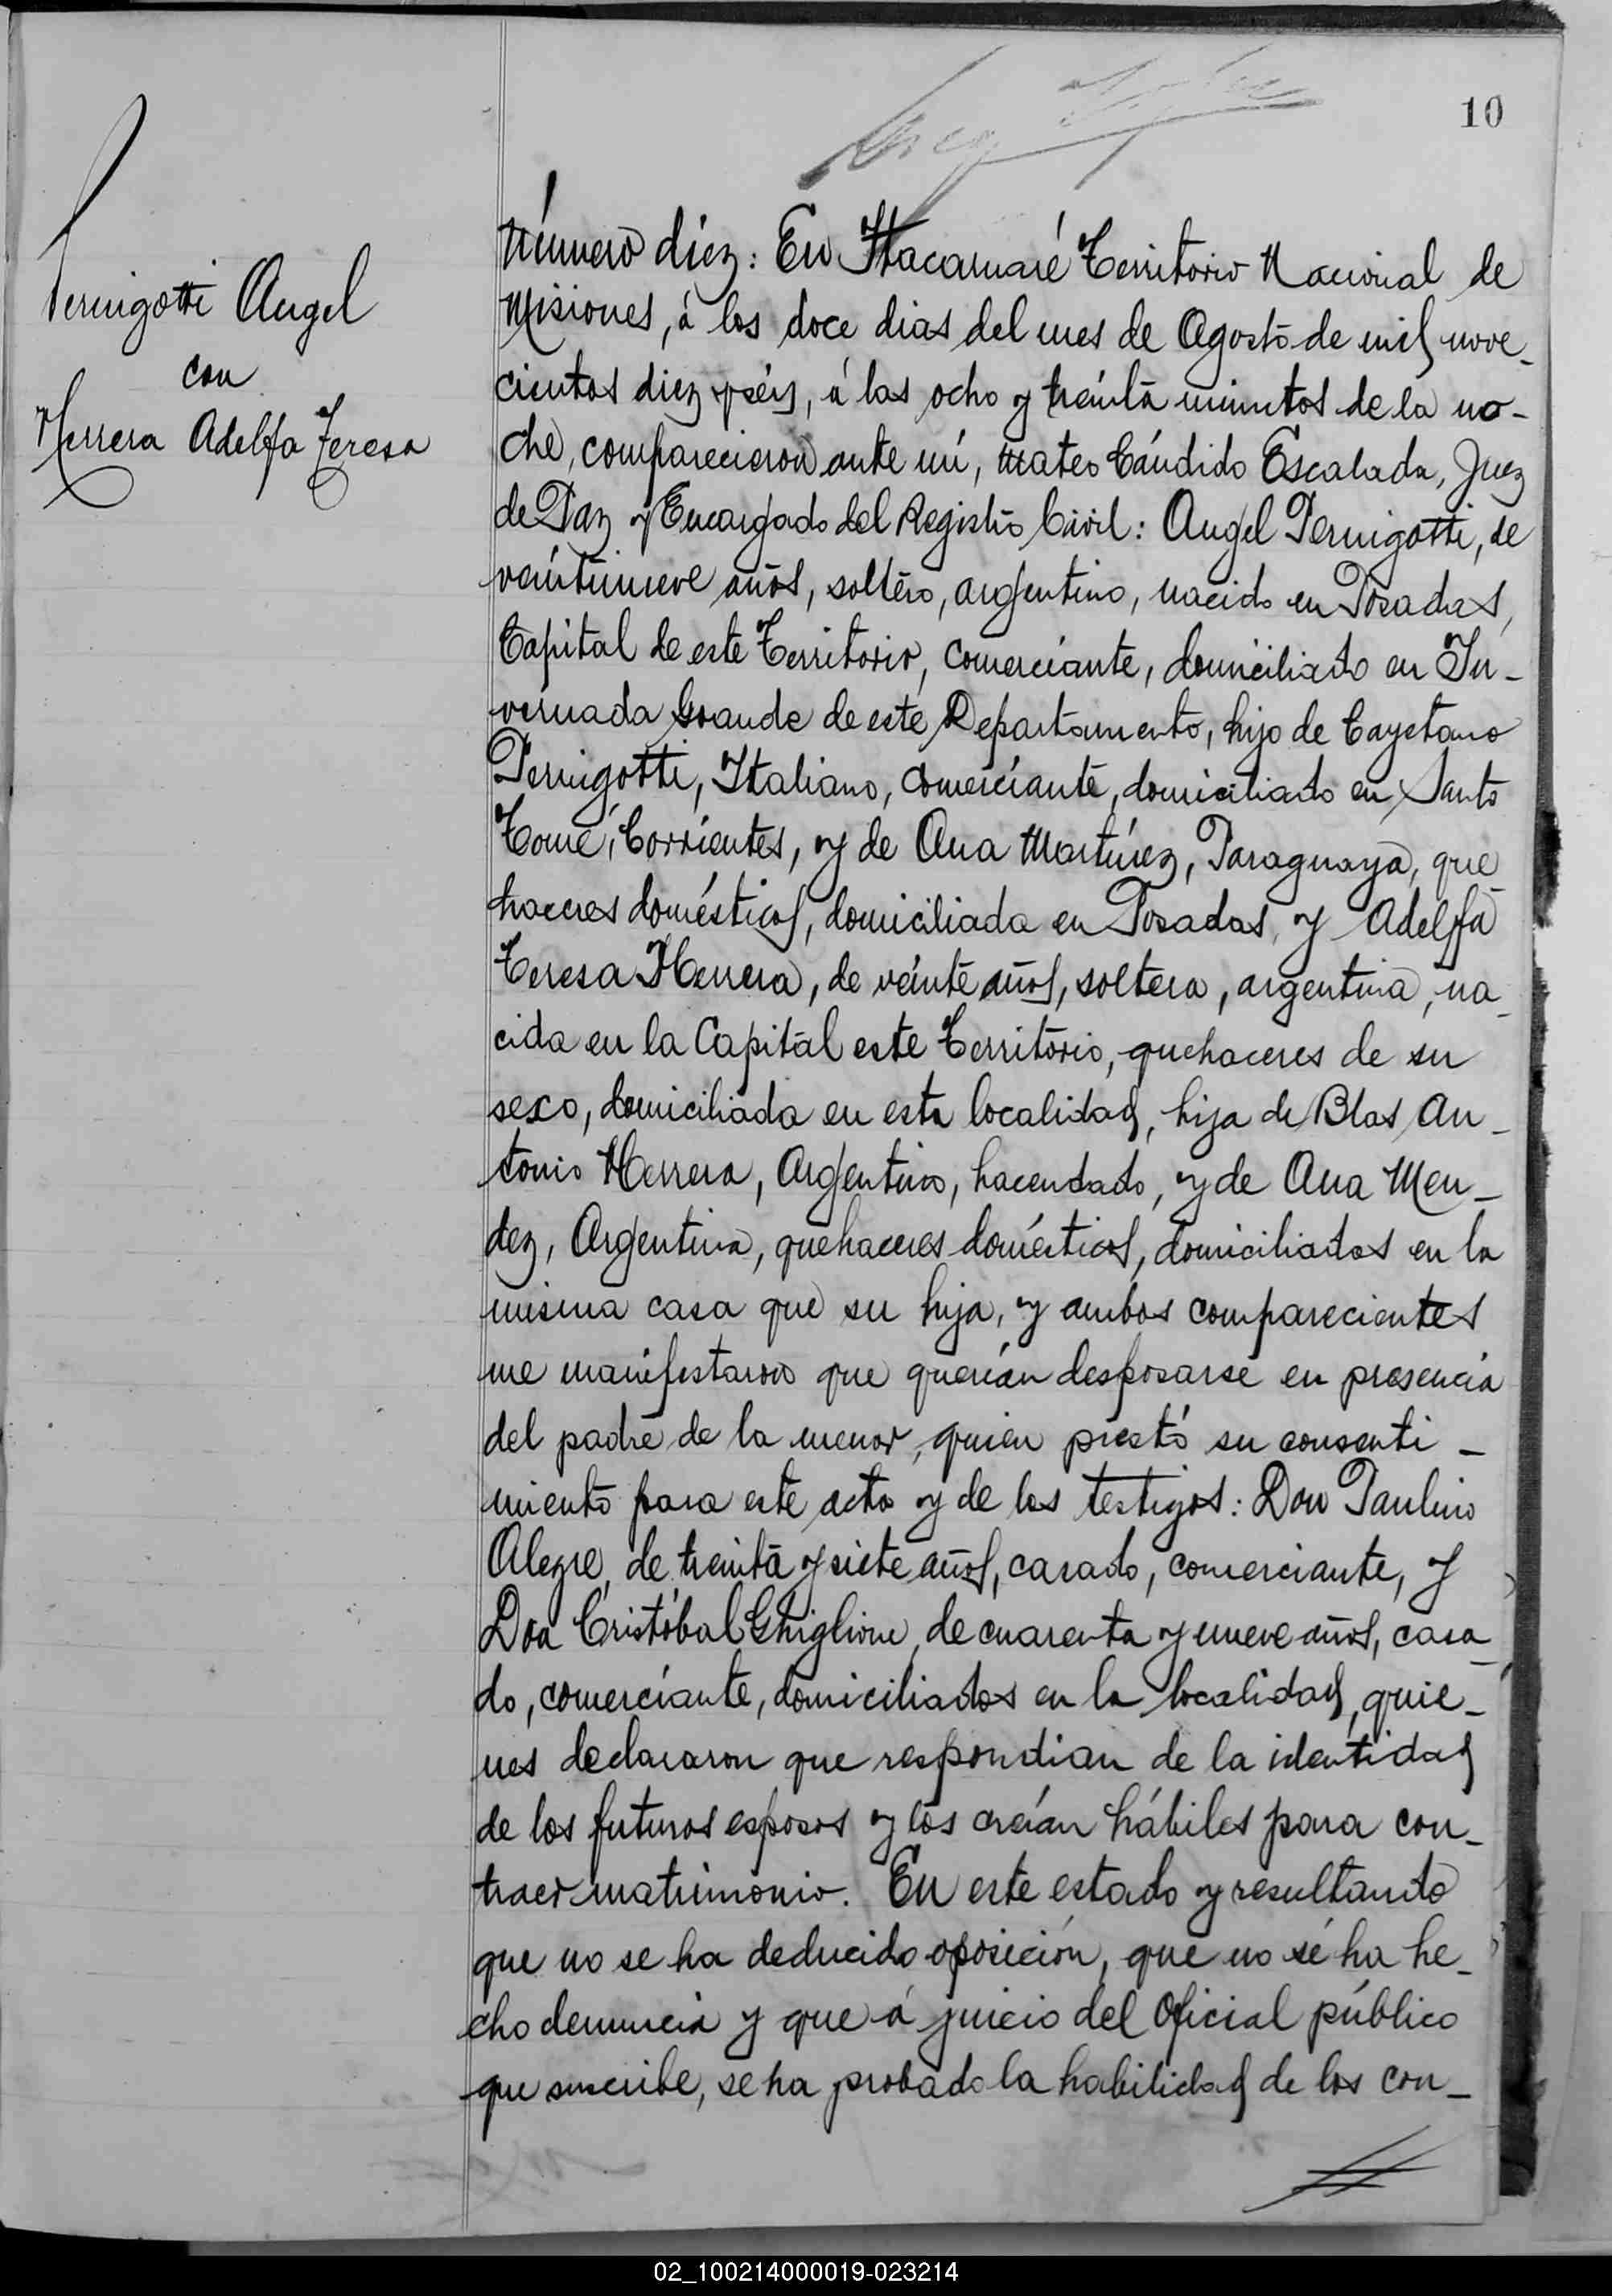 10
Pernigotti Angel
con
Herrera Adelfa Teresa
Número diez: En Itacaruaré Territorio Nacional de
Misiones, á los doce dias del mes de Agosto de mil nove_
cientos diez y séis, á las ocho y treinta minutos de la no-
che, comparecieron ante mí, Mateo Cándido Escalada, Juez
de Paz y Encargado del Registro Civil: Angel Pernigotti, de
veintinueve años, soltero, argentino, nacido en Posadas,
Capital de este Territorio, comerciante, domiciliado en In-
vernada Grande de este Departamento, hijo de Cayetano
Pernigotti, Italiano, comerciante, domiciliado en Santo
Tomé, Corrientes, y de Ana Martínez, Paraguaya, que_
haceres domésticos, domiciliada en Posadas, y Adelfa
Teresa Herrera, de veinte años, soltera, argentina, na_
cida en la Capital este Territorio, quehaceres de su
sexo, domiciliada en esta localidad, hija de Blas An_
tonio Herrera, Argentino, hacendado, y de Ana Men_
dez, Argentina, quehaceres domésticos, domiciliados en la
misma casa que su hija, y ambos comparecientes
me manifestaron que querían desposarse en presencia
del padre de la menor, quien prestó su consenti_
miento para este acto y de los testigos: Don Paulino
Alegre, de treinta y siete años, casado, comerciante, y
Don Cristóbal Ghiglione, de cuarenta y nueve años, casa_
do, comerciante, domiciliados en la localidad, quie_
nes declararon que respondian de la identidad
de los futuros esposos y los creían hábiles para con_
traer matrimonio. En este estado y resultando
que no se ha deducido oposición, que no se ha he_
cho denuncia y que á juicio del Oficial público
que suscribe, se ha probado la habilidad de los con_
02_100214000019-023214